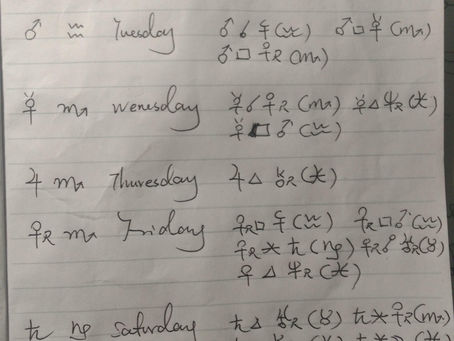 ♂ ♒ Tuesday ♂ ☌ (♒) ♂ □ ☿ (♏)
♂ □ ♀R (♏)
☿ ♏ wenesday ☿ ☌ ♀R (♏) ☿ △ ♆R (♓)
☿ □ ♂ (♒)
♃ ♏ Thuresday ♃ △ R (♓)
♀R ♏ Friday ♀R □ (♒) ♀R □ ♂ (♒)
♀R ⚹ ♄ (♑) ♀R ☍ ♅R (♉)
♀ △ ♆R (♓)
♄ ♑ saturday ♄ △ ♅R (♉) ♄ ⚹ ♀R (♏)